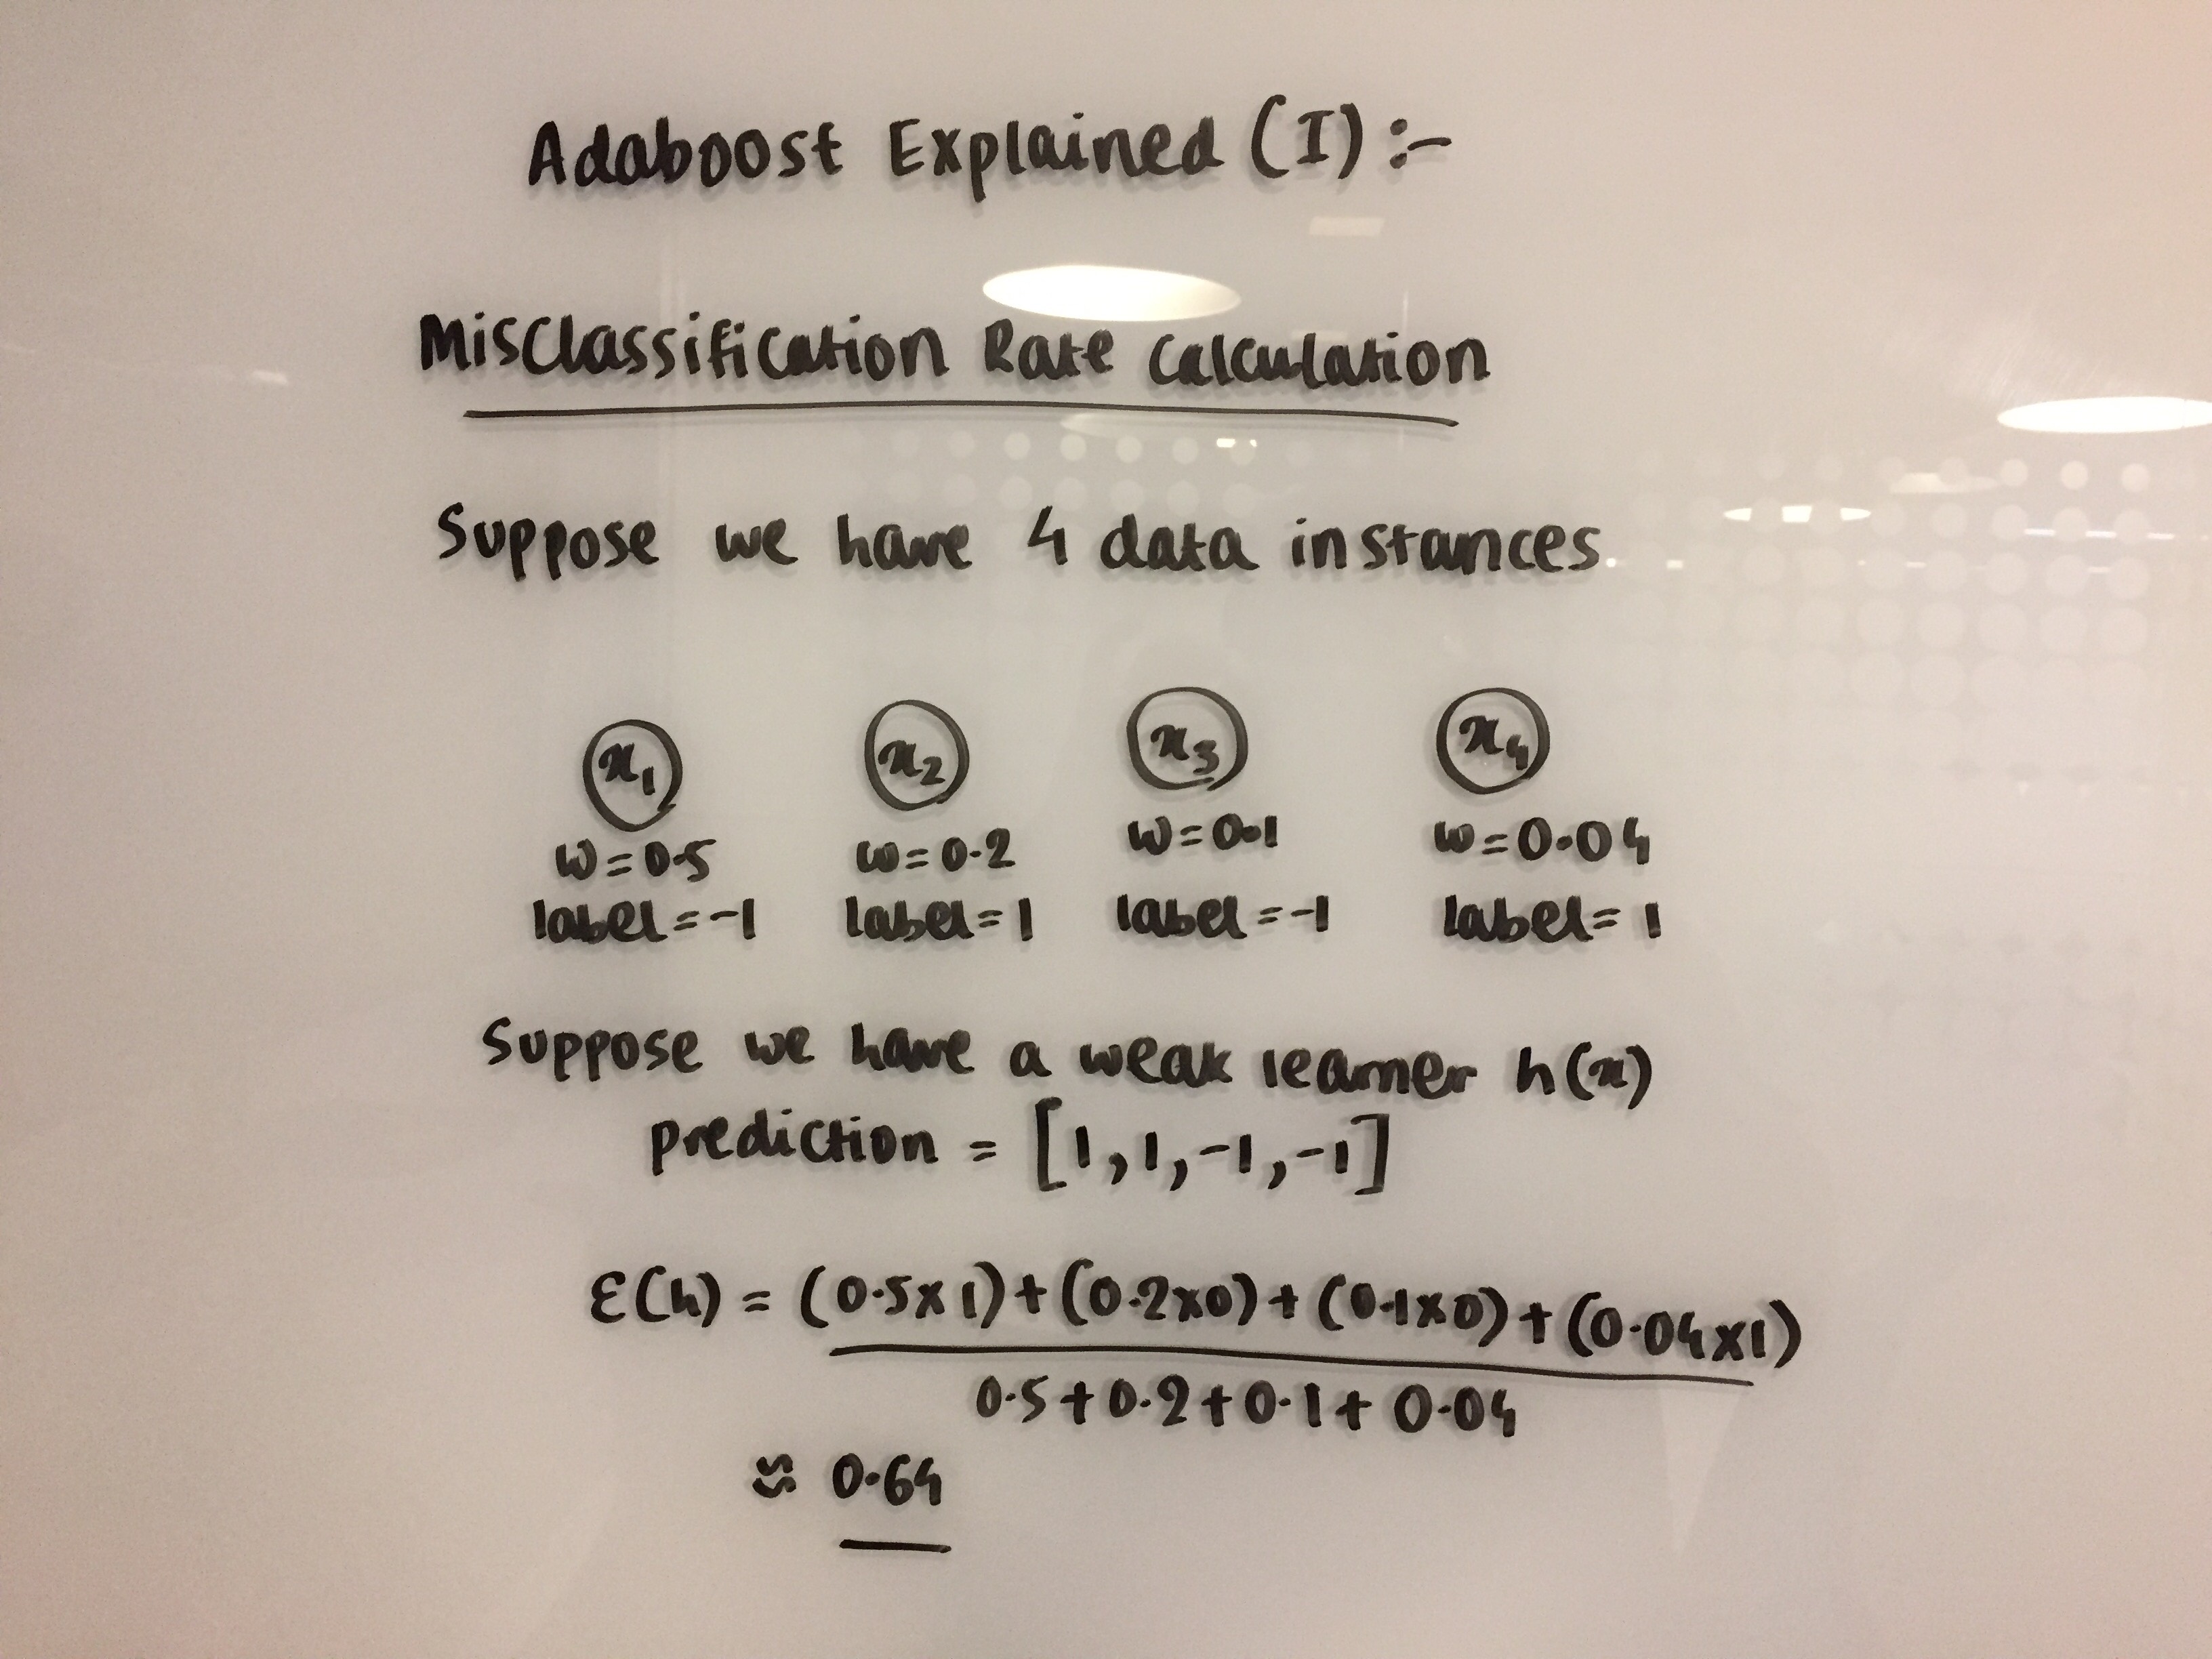 Adaboost Explained (I) :-
Misclassification Rate Calculation
Suppose we have 4 data instances.
x₁ x₂ x₃ x₄
w=0.5 w=0.2 w=0.1 w=0.04
label=-1 label=1 label=-1 label=1
Suppose we have a weak learner h(x)
prediction = [1,1,-1,-1]
ε(h) = (0.5x1)+(0.2x0)+(0.1x0)+(0.04x1)
0.5+0.2+0.1+0.04
≈ 0.64